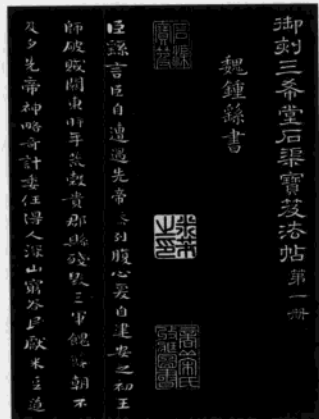 御刻三希堂石渠寶笈法帖 第一册
魏鍾繇書
石渠寶笈
米芾之印
臣繇言臣自遭遇先帝忝列腹心爰自建安之初王
師破賊關東時年荒穀貴郡縣殘毁三軍餽饟朝不
及夕先帝神略奇計委任得人深山窮谷民獻米豆道